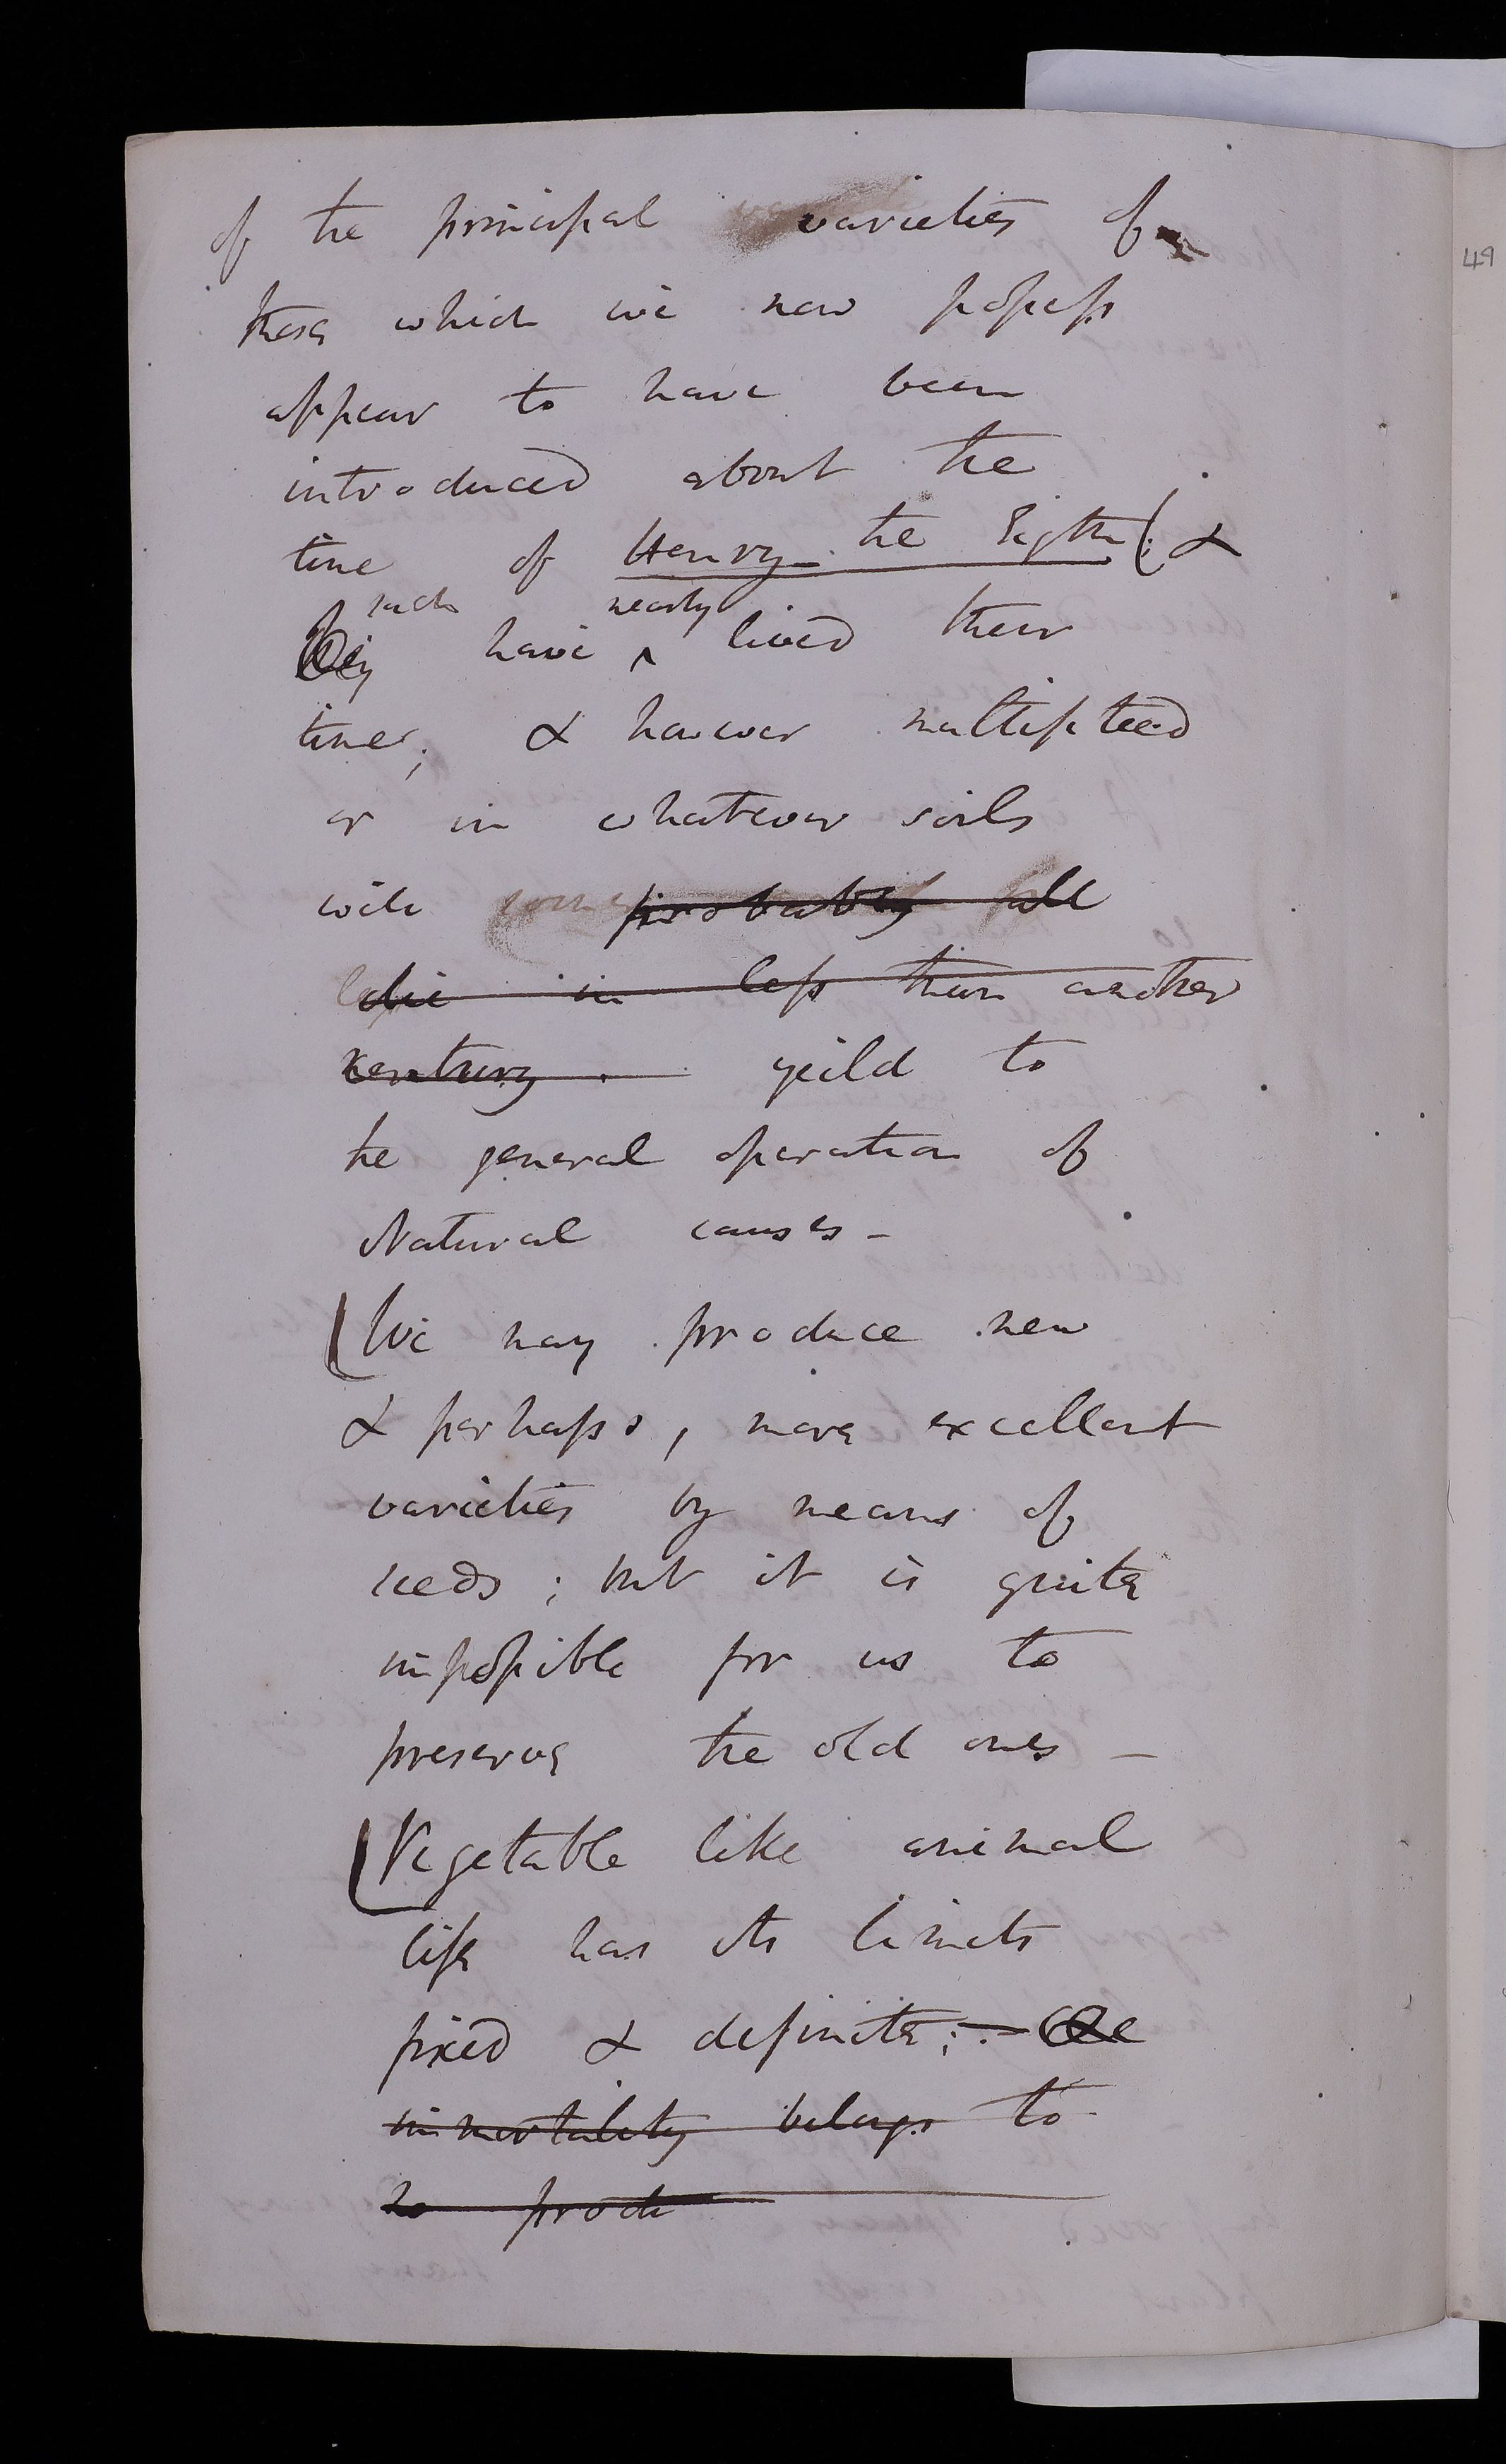 of the principal varieties of
these which we now possess
appear to have been
introduced about the
time of Henry the Eigth (; &
such nearly
they have ^ lived their
time; & however multiplied
or in whatever soils
will some probably all
die in less than another
century. yeild to
the general operation of
Natural causes -
(We may produce new
& perhaps, more excellent
varieties by means of
seeds; but it is quite
impossible for us to
preserve the old ones -
(Vegetable like animal
life has its limits
fixed & definite; -
immortality belongs to
no produ
49